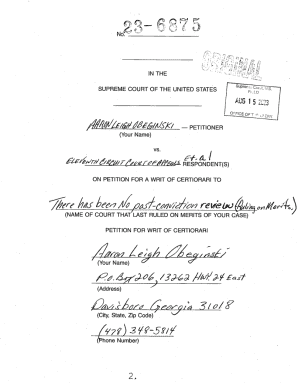 No. 23-6875
ORIGINAL
IN THE
SUPREME COURT OF THE UNITED STATES
AUG 15 2023
AARON LEIGH OBEGINSKI — PETITIONER
(Your Name)
vs.
ELEVENTH CIRCUIT COURT OF APPEALS Et. Al RESPONDENT(S)
ON PETITION FOR A WRIT OF CERTIORARI TO
There has been No post-conviction review (Ruling on Merits.)
(NAME OF COURT THAT LAST RULED ON MERITS OF YOUR CASE)
PETITION FOR WRIT OF CERTIORARI
Aaron Leigh Obeginski
(Your Name)
P.O. Box 206, 13262 Hwy. 24 East
(Address)
Davisboro Georgia 31018
(City, State, Zip Code)
(478) 348-5814
(Phone Number)
2.